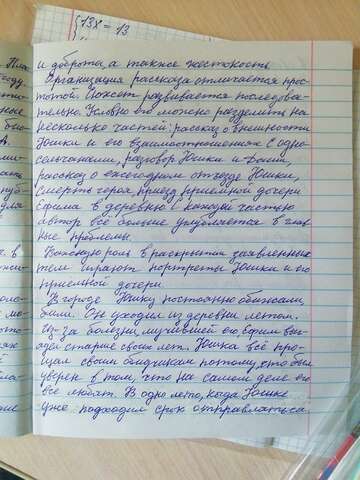 13x = 13
и доброта, а также жестокость.
Организация рассказа отличается прос-
тотой. Сюжет развивается последова-
тельно. Условно его можно разделить на
несколько частей: рассказ о внешности
Юшки и его взаимоотношениях с одно-
сельчанами, разговор Юшки и Даши,
рассказ о ежегодном отъезде Юшки,
смерть героя, приезд приёмной дочери
Ефима в деревню. С каждой частью
автор всё больше углубляется в глав-
ные проблемы.
Важную роль в раскрытии заявленных
тем играют портреты Юшки и его
приёмной дочери.
В городе Юшку постоянно обижали,
били. Он уходил из деревни летом.
Из-за болезни, мучившей его, Ефим выг-
лядел старше своих лет. Юшка всё про-
щал своим обидчикам потому, что был
уверен в том, что на самом деле его
все любят. В одно лето, когда Юшке
уже подходил срок отправляться